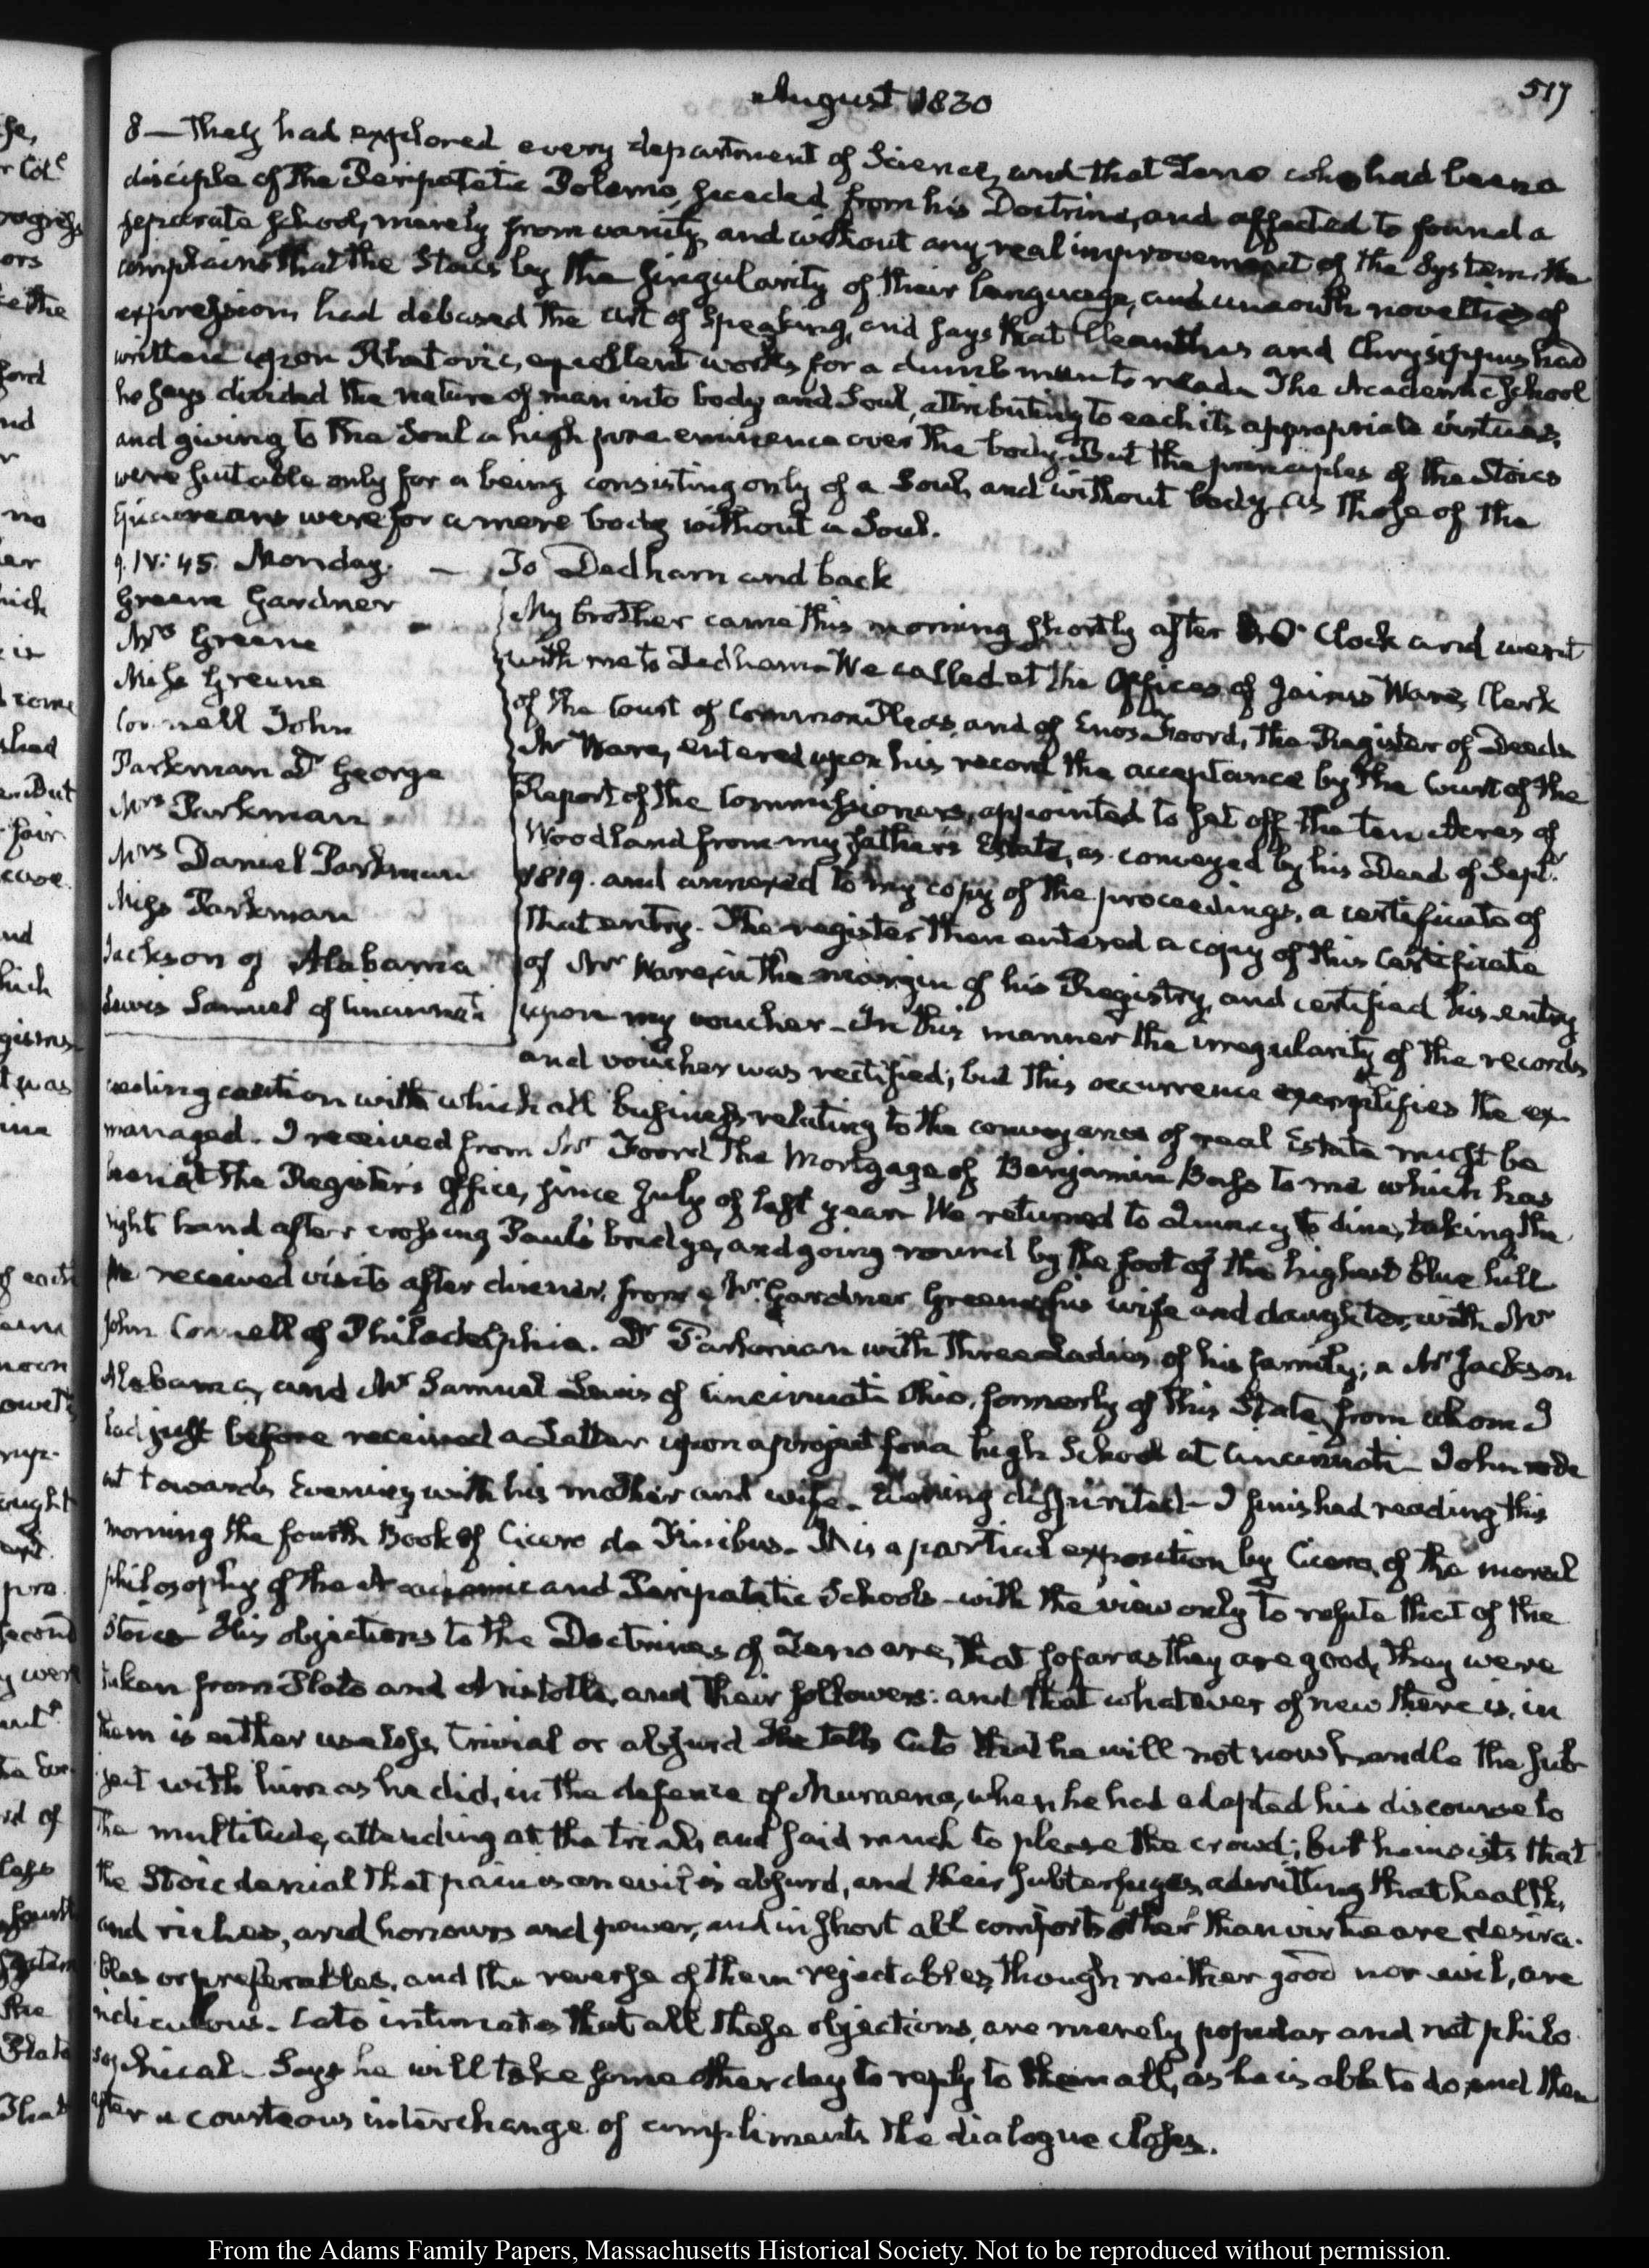 August 1830
517
8 — They had explored every department of Science, and that Zeno who had been a
disciple of the Peripatetic Polemo, seceded from his Doctrine, and affected to found a
separate school, merely from vanity, and without any real improvement of the System. He
complains that the Stoics by the singularity of their language, and uncouth novelties of
expression, had debased the art of speaking, and says that Cleanthes and Chrysippus had
written upon Rhetoric, excellent works for a dumb man to read. The Academic School
he says divided the nature of man into body and Soul, attributing to each its appropriate virtues,
and giving to the Soul a high pre-eminence over the body. But the principles of the Stoics
were suitable only for a being consisting only of a Soul, and without body, as those of the
Epicureans were for a mere body without a Soul.
9. IV: 45. Monday. — To Dedham and back
Greene Gardner
Mrs Greene
Miss Greene
Connell John
Parkman Dr George
Mrs Parkman
Mrs Daniel Parkman
Miss Parkman
Jackson of Alabama
Lewis Samuel of Cincinnati
My brother came this morning shortly after O'Clock and went
with me to Dedham. We called at the Offices of Jairus Ware, Clerk
of the Court of Common Pleas, and of Enos Foord, the Register of Deeds
Mr Ware, entered upon his record the acceptance by the Court of the
Report of the Commissioners, appointed to set off the ten Acres of
Woodland from my father's Estate, as conveyed by his Deed of Septr
1819. and annexed to my copy of the proceedings, a certificate of
that entry. The register then entered a copy of this Certificate
of Mr Ware, in the margin of his Registry, and certified his entry
upon my voucher — In this manner the irregularity of the records
and voucher was rectified; but this occurrence exemplifies the ex-
ceeding caution with which all business relating to the conveyance of real Estate must be
managed. I received from Mr Foord the Mortgage of Benjamin Bass to me which has
been at the Register's Office, since July of last year. We returned to Quincy to dine, taking the
right hand after crossing Paul's bridge, and going round by the foot of the highest blue hill
We received visits after dinner, from Mr Gardner Greene, his wife and daughter, with Mr
John Connell of Philadelphia. Dr Parkman with three Ladies of his family; a Mr Jackson
Alabama, and Mr Samuel Lewis of Cincinnati Ohio, formerly of this State, from whom I
had just before received a Letter upon a project for a high School at Cincinnati — John rode
out towards Evening with his mother and wife. Evening dispirited — I finished reading this
morning the fourth Book of Cicero de Finibus. It is a partial exposition by Cicero, of the moral
philosophy of the Academic and Peripatetic Schools — with the view only to refute that of the
Stoics. His objections to the Doctrines of Zeno are, that so far as they are good, they were
taken from Plato and Aristotle, and their followers: and that whatever of new there is, in
them is either useless, trivial or absurd. He tells Cato that he will not now handle the sub-
ject with him as he did, in the defence of Muraena, when he had adapted his discourse to
the multitude, attending at the trial, and said much to please the crowd; but he insists that
the Stoic denial that pain is an evil is absurd, and their subterfuges, admitting that health,
and riches, and honours and power, and in short all comforts other than virtue are desira-
bles or preferables, and the reverse of them rejectables, though neither good nor evil, are
ridiculous. Cato intimates that all these objections, are merely popular and not philo-
sophical. Says he will take some other day to reply to them all, as he is able to do, and then
after a courteous interchange of compliments the dialogue closes.
From the Adams Family Papers, Massachusetts Historical Society. Not to be reproduced without permission.